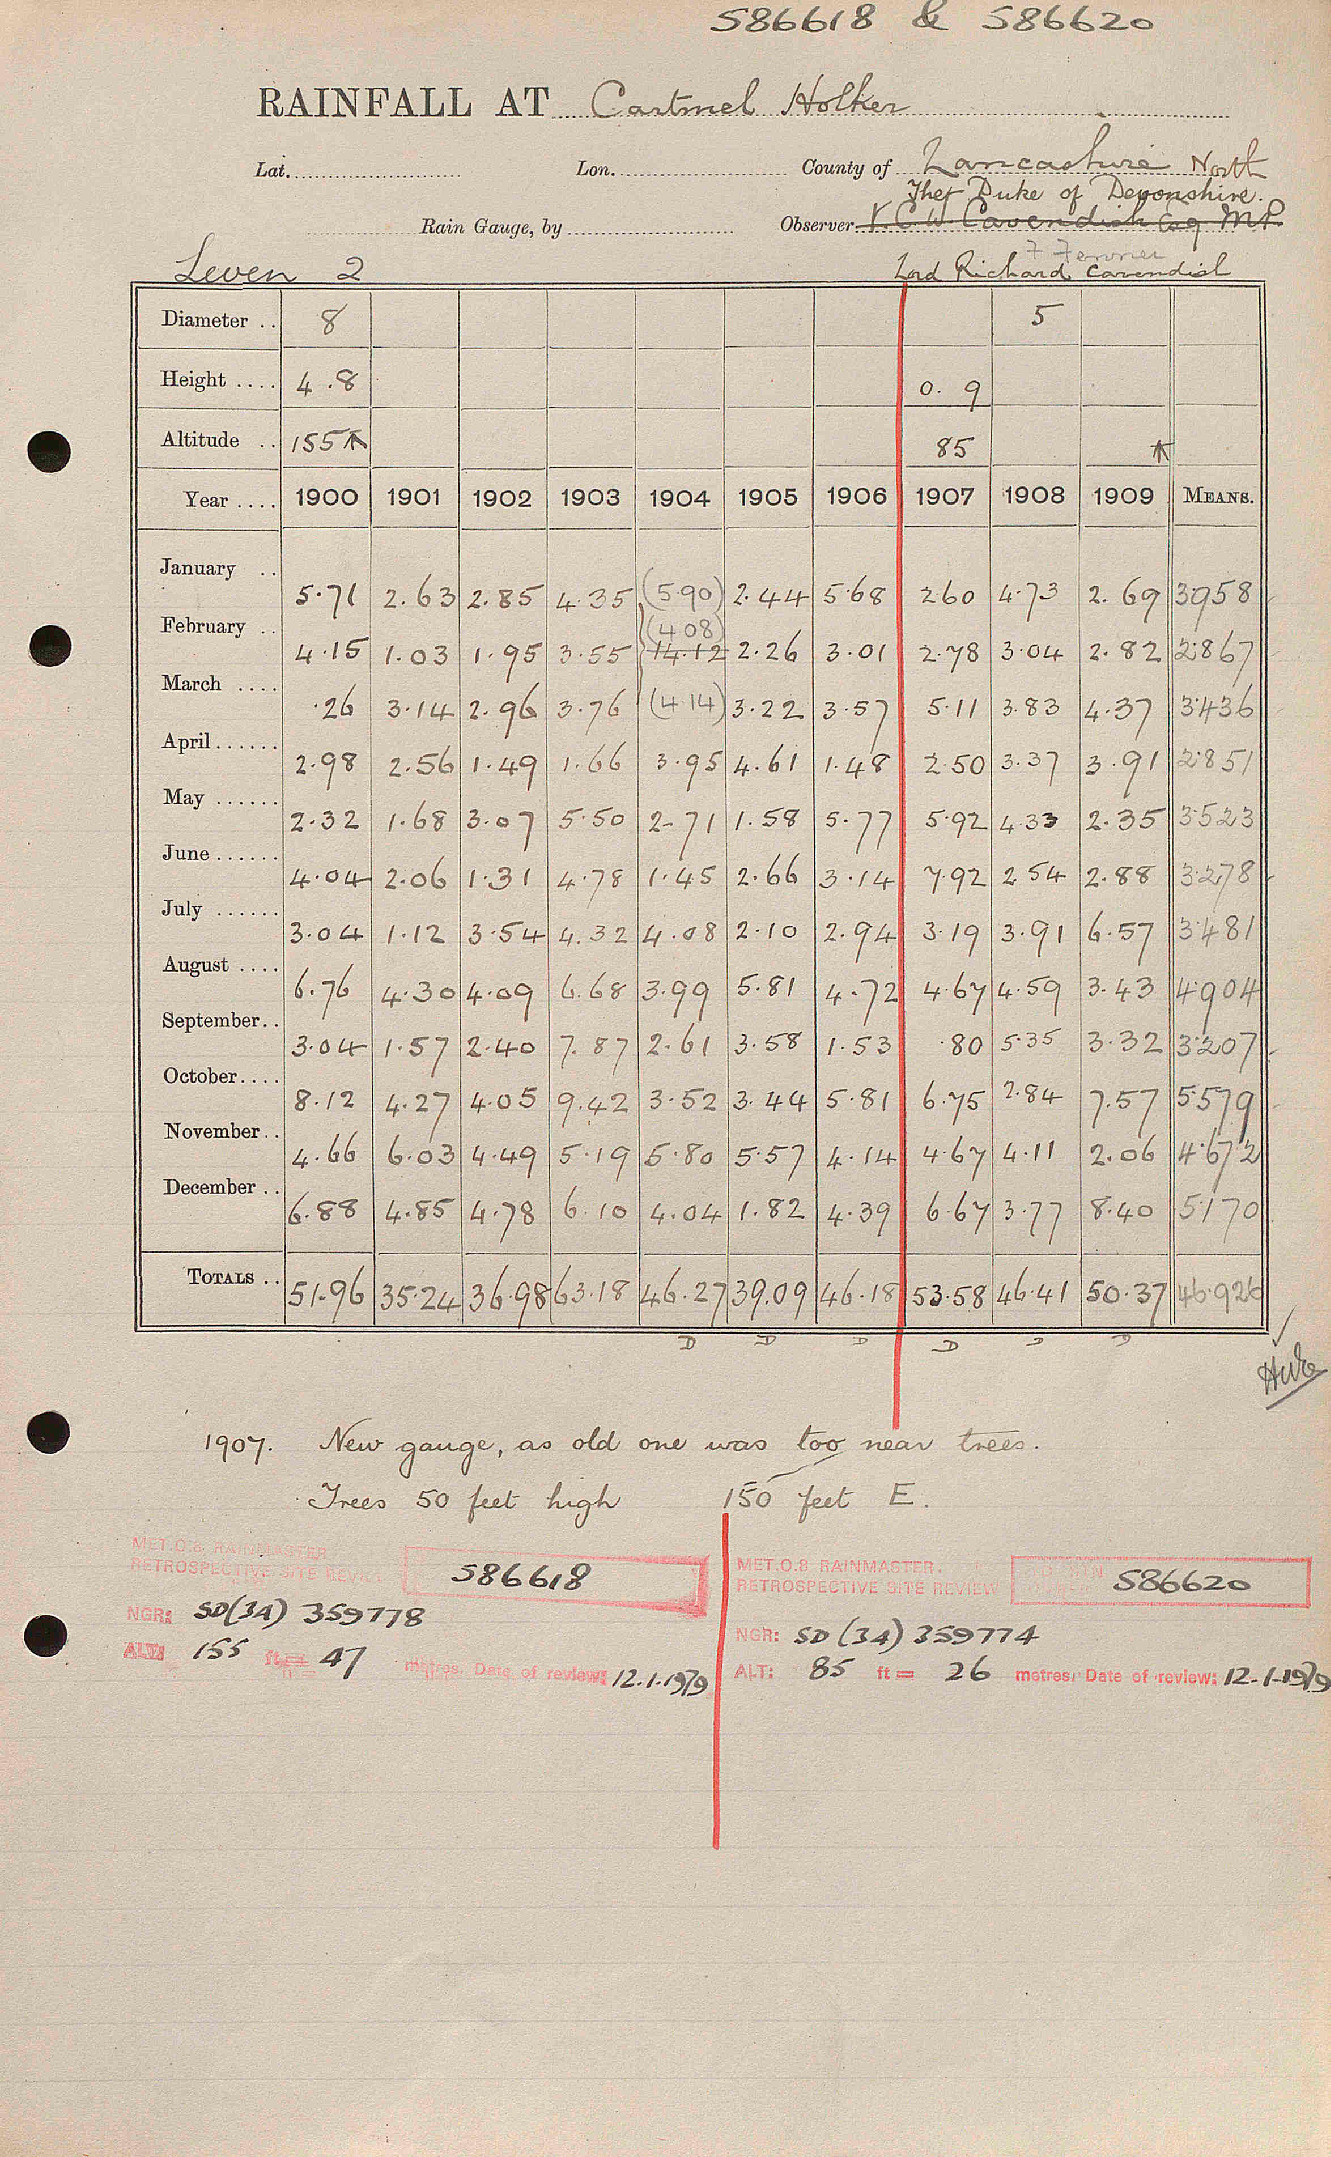 586618 & 586620
RAINFALL AT Cartmel Holker
Lat. Lon. County of Lancashire North
The Duke of Devonshire.
Rain Gauge, by Observer V C W Cavendish Esq MP.
Leven 2 Lord Richard Cavendish
Diameter .. 8 5
Height .... 4.8 0.9
Altitude .. 155 85
Year .... 1900 1901 1902 1903 1904 1905 1906 1907 1908 1909 MEANS.
January .. 5.71 2.63 2.85 4.35 (5.90) 2.44 5.68 2.60 4.73 2.69 3.958
(4.08)
February .. 4.15 1.03 1.95 3.55 14.12 2.26 3.01 2.78 3.04 2.82 2.867
March .... .26 3.14 2.96 3.76 (4.14) 3.22 3.57 5.11 3.83 4.37 3.436
April ...... 2.98 2.56 1.49 1.66 3.95 4.61 1.48 2.50 3.37 3.91 2.851
May ...... 2.32 1.68 3.07 5.50 2.71 1.58 5.77 5.92 4.33 2.35 3.523
June ...... 4.04 2.06 1.31 4.78 1.45 2.66 3.14 7.92 2.54 2.88 3.278
July ...... 3.04 1.12 3.54 4.32 4.08 2.10 2.94 3.19 3.91 6.57 3.481
August .... 6.76 4.30 4.09 6.68 3.99 5.81 4.72 4.67 4.59 3.43 4.904
September.. 3.04 1.57 2.40 7.87 2.61 3.58 1.53 .80 5.35 3.32 3.207
October.... 8.12 4.27 4.05 9.42 3.52 3.44 5.81 6.75 2.84 7.57 5.579
November.. 4.66 6.03 4.49 5.19 5.80 5.57 4.14 4.67 4.11 2.06 4.672
December .. 6.88 4.85 4.78 6.10 4.04 1.82 4.39 6.67 3.77 8.40 5.170
TOTALS .. 51.96 35.24 36.98 63.18 46.27 39.09 46.18 53.58 46.41 50.37 46.926
D D D D D D
1907. New gauge, as old one was too near trees.
Trees 50 feet high 150 feet E.
MET.O.8 RAINMASTER
RETROSPECTIVE SITE REVIEW 586618
NGR: SD(34) 359778
ALT: 155 ft = 47 metres. Date of review: 12.1.1979
MET.O.8 RAINMASTER.
RETROSPECTIVE SITE REVIEW 586620
NGR: SD (34) 359774
ALT: 85 ft = 26 metres. Date of review: 12.1.1979